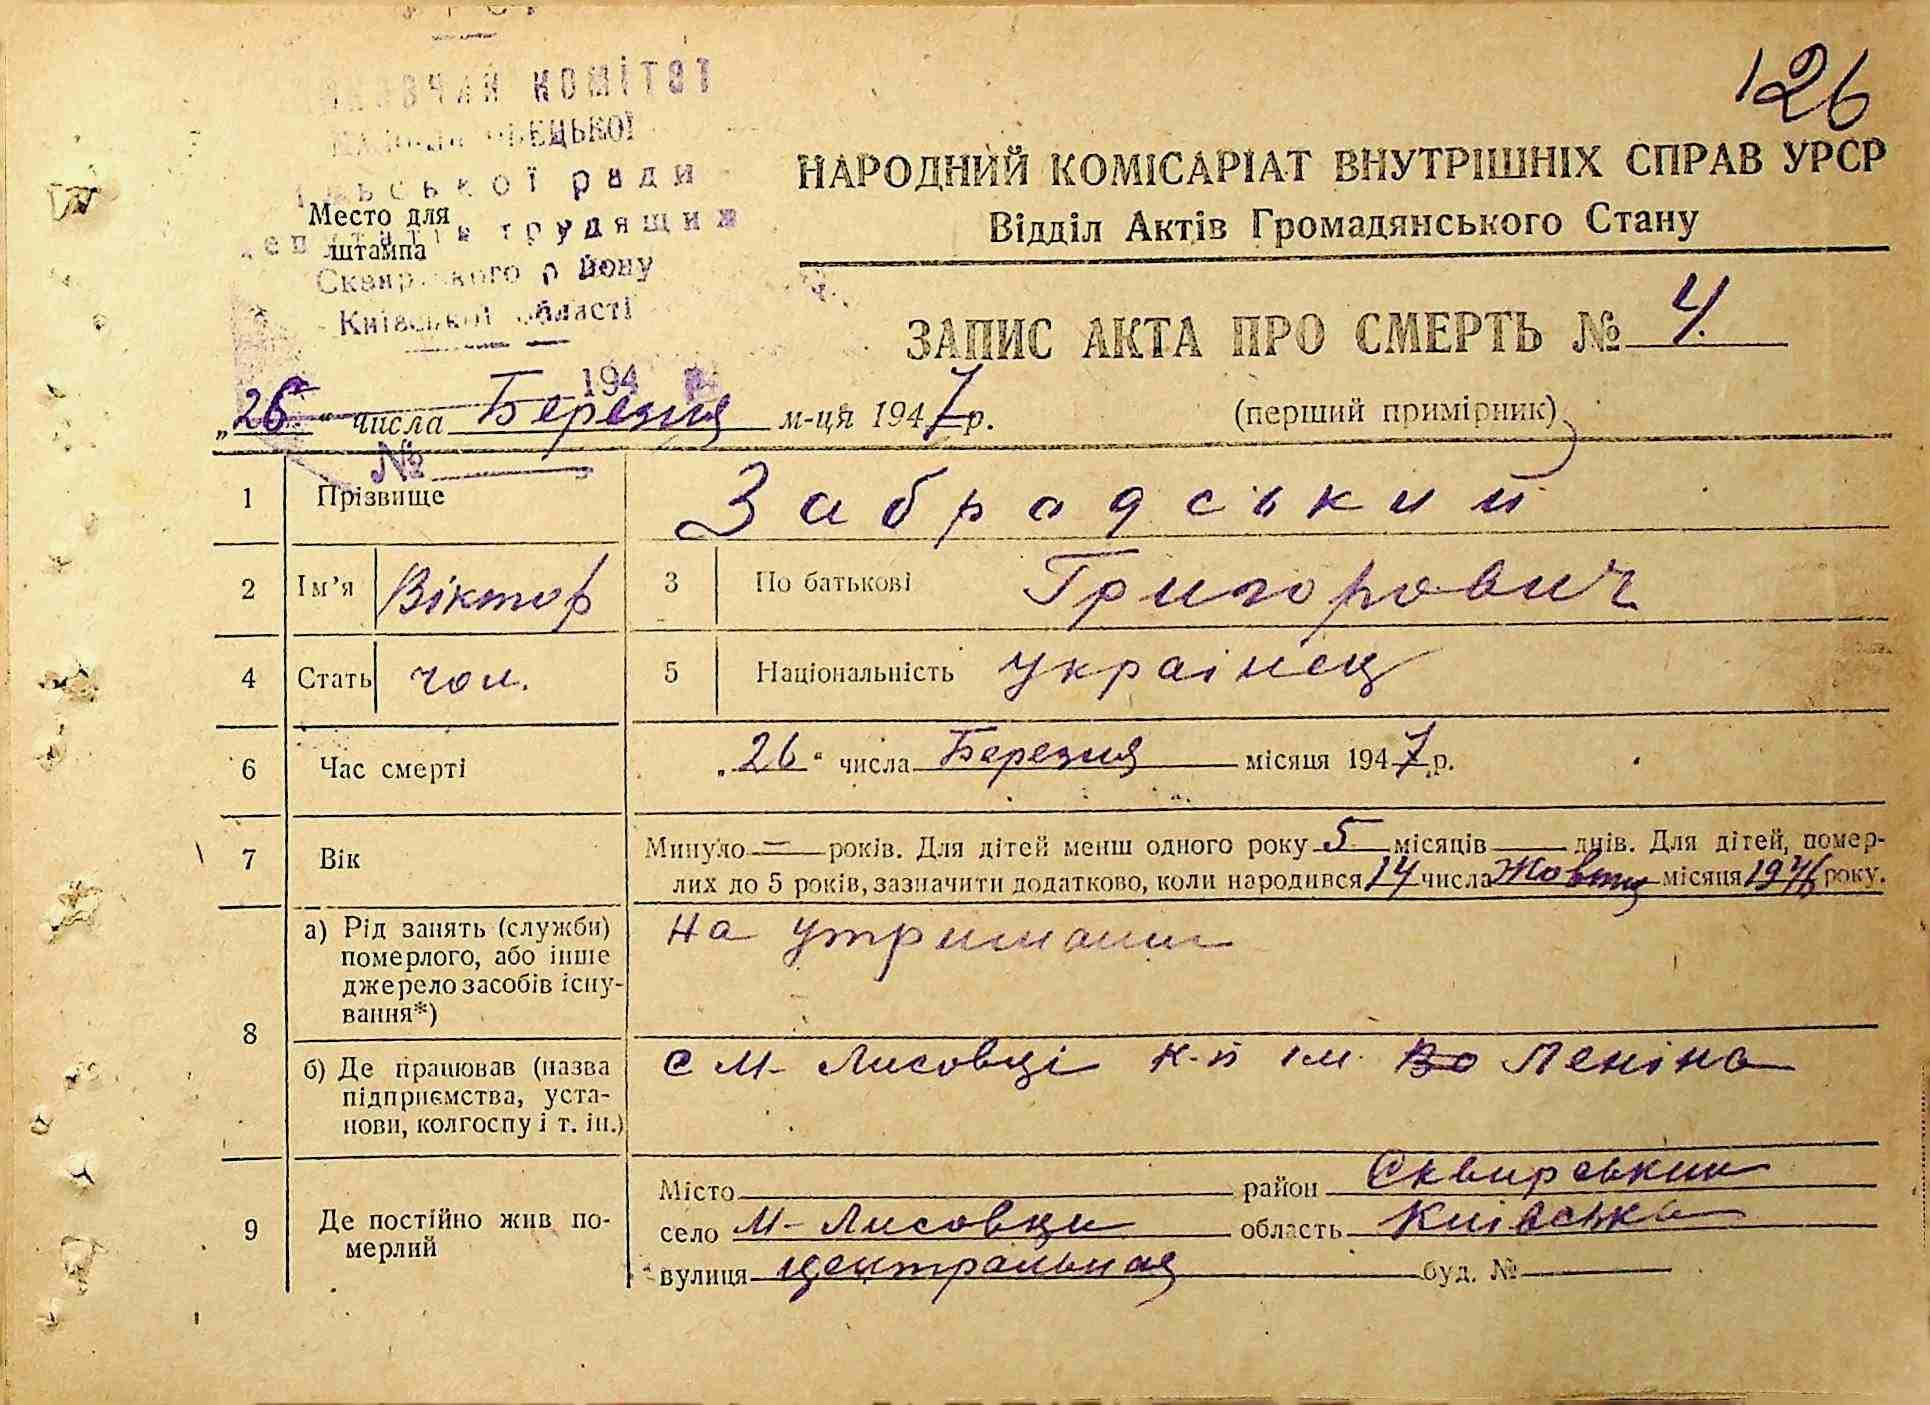 126
комітет
ської ради
депутатів трудящих
Сквирського району
Київської області
Место для
штампа
194
№
НАРОДНИЙ КОМІСАРІАТ ВНУТРІШНІХ СПРАВ УРСР
Відділ Актів Громадянського Стану
ЗАПИС АКТА ПРО СМЕРТЬ № 4.
„26“ числа Березня м-ця 1947 р.
(перший примірник)
1 Прізвище Забрадський
2 Ім’я Віктор 3 По батькові Григорович
4 Стать чол. 5 Національність українец
6 Час смерті „26“ числа Березня місяця 1947 р.
7 Вік Минуло — років. Для дітей менш одного року 5 місяців днів. Для дітей, помер-
лих до 5 років, зазначити додатково, коли народився 14 числа Жовтня місяця 1946 року.
8 а) Рід занять (служби) померлого, або інше джерело засобів існу-вання*) на утриманні
б) Де працював (назва підприємства, уста-нови, колгоспу і т. ін.) с М-Лисовці к-п ім. Во Леніна
9 Де постійно жив по-мерлий
Місто район Сквирський
село М-Лисовци область Київська
вулиця центральная буд. №